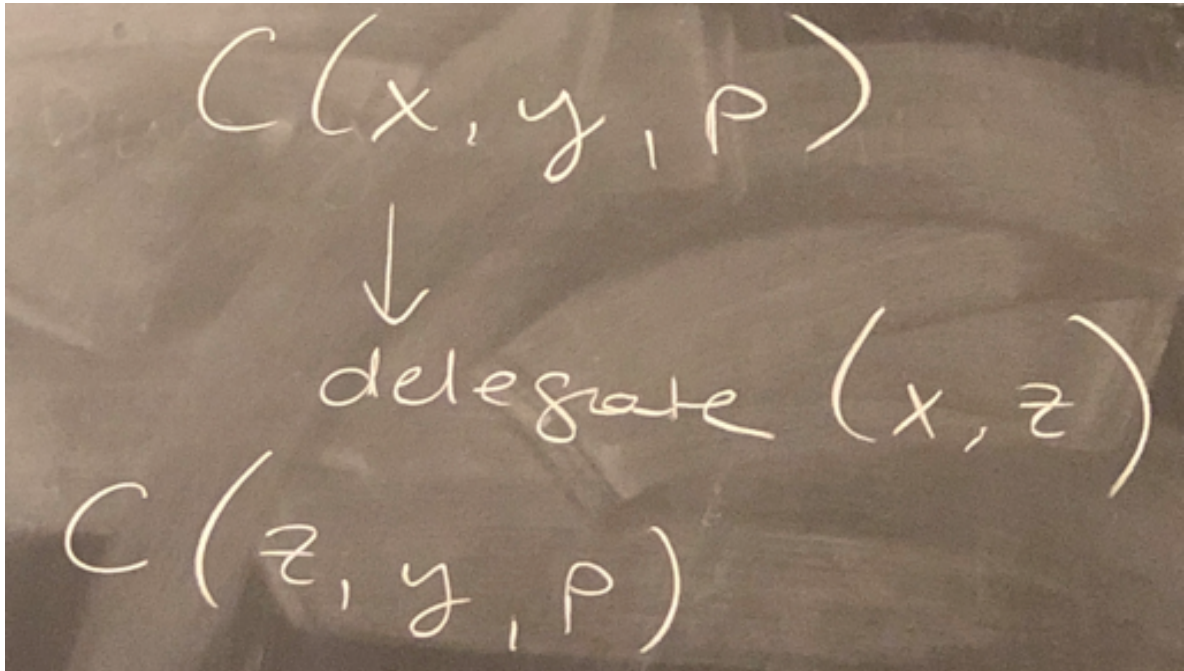 C(x, y, p)
↓
delegate (x, z)
C(z, y, p)